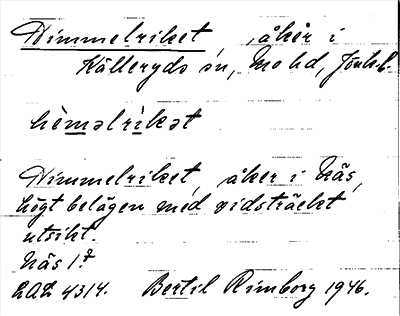 Himmelriket, åker i
Källeryds sn, Mo hd, Jönk.l.
hèməlrìkət
Himmelriket, åker i Näs,
högt belägen med vidsträckt
utsikt.
Näs 1?
LAL 4314. Bertil Rimborg 1946.